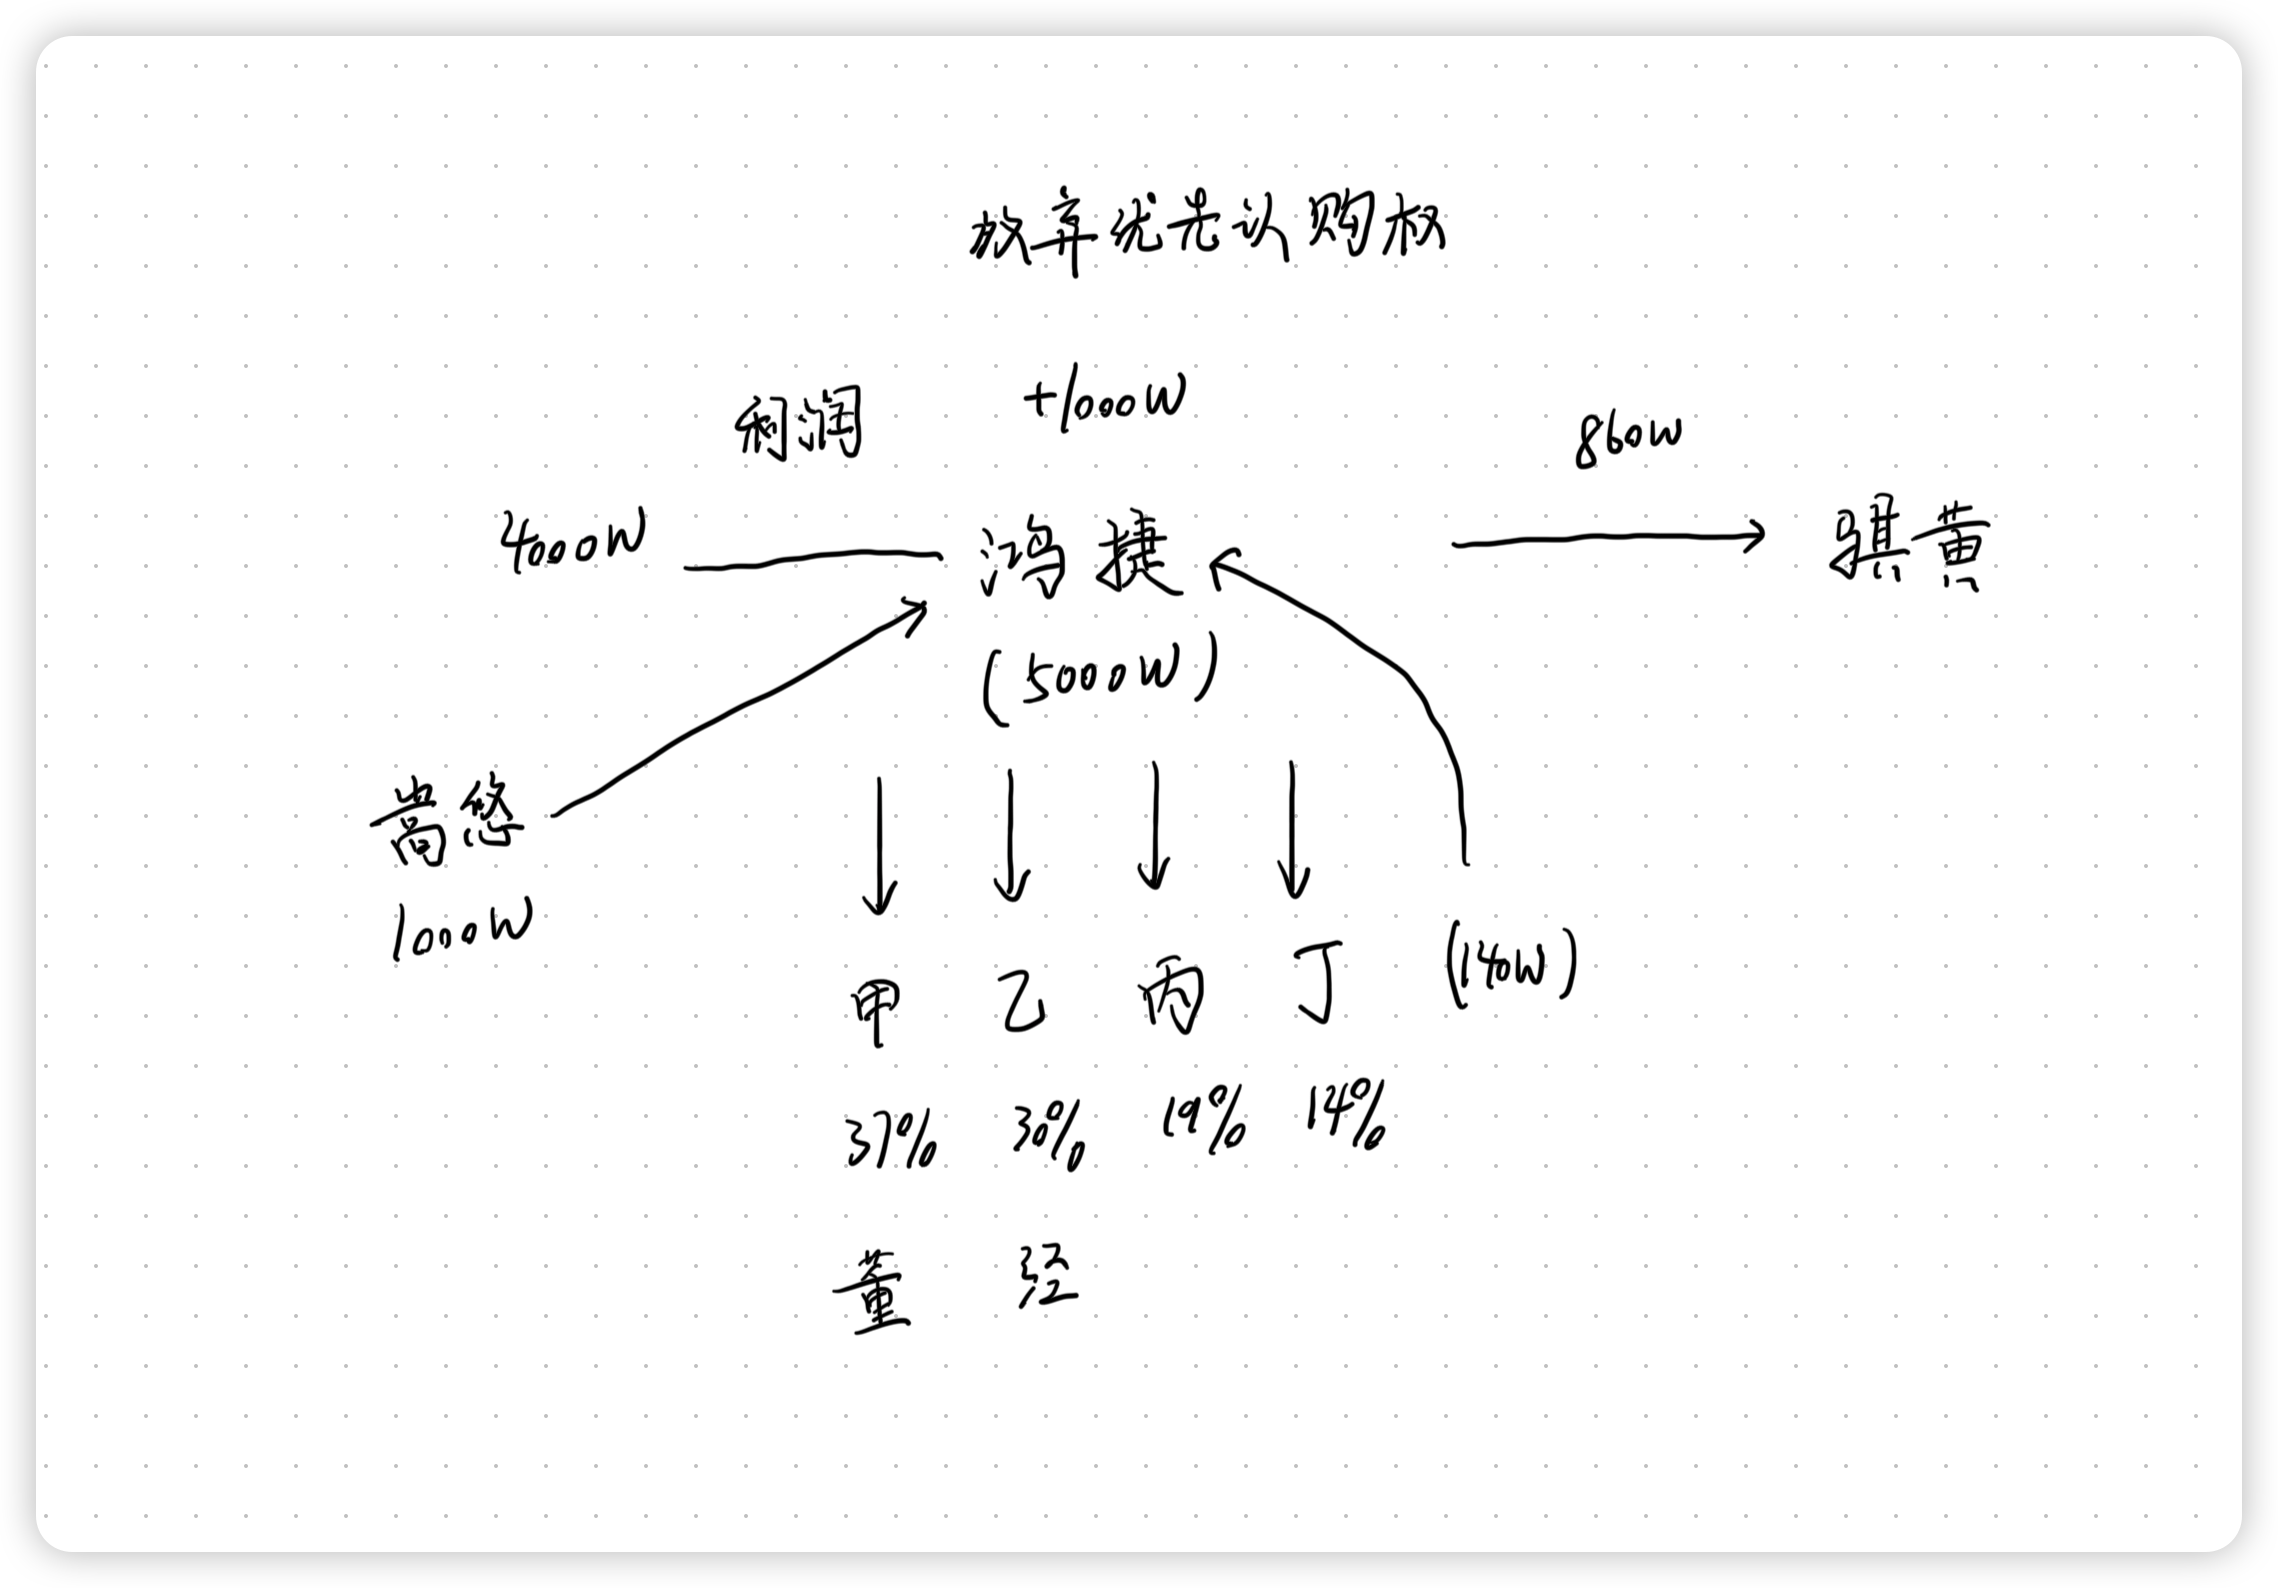 放弃优先认购权
利润 +1000W
860W
4000W 鸿捷 骐黄
(5000W)
高悠
1000W
甲 乙 丙 丁 (140W)
37% 30% 19% 14%
董 经